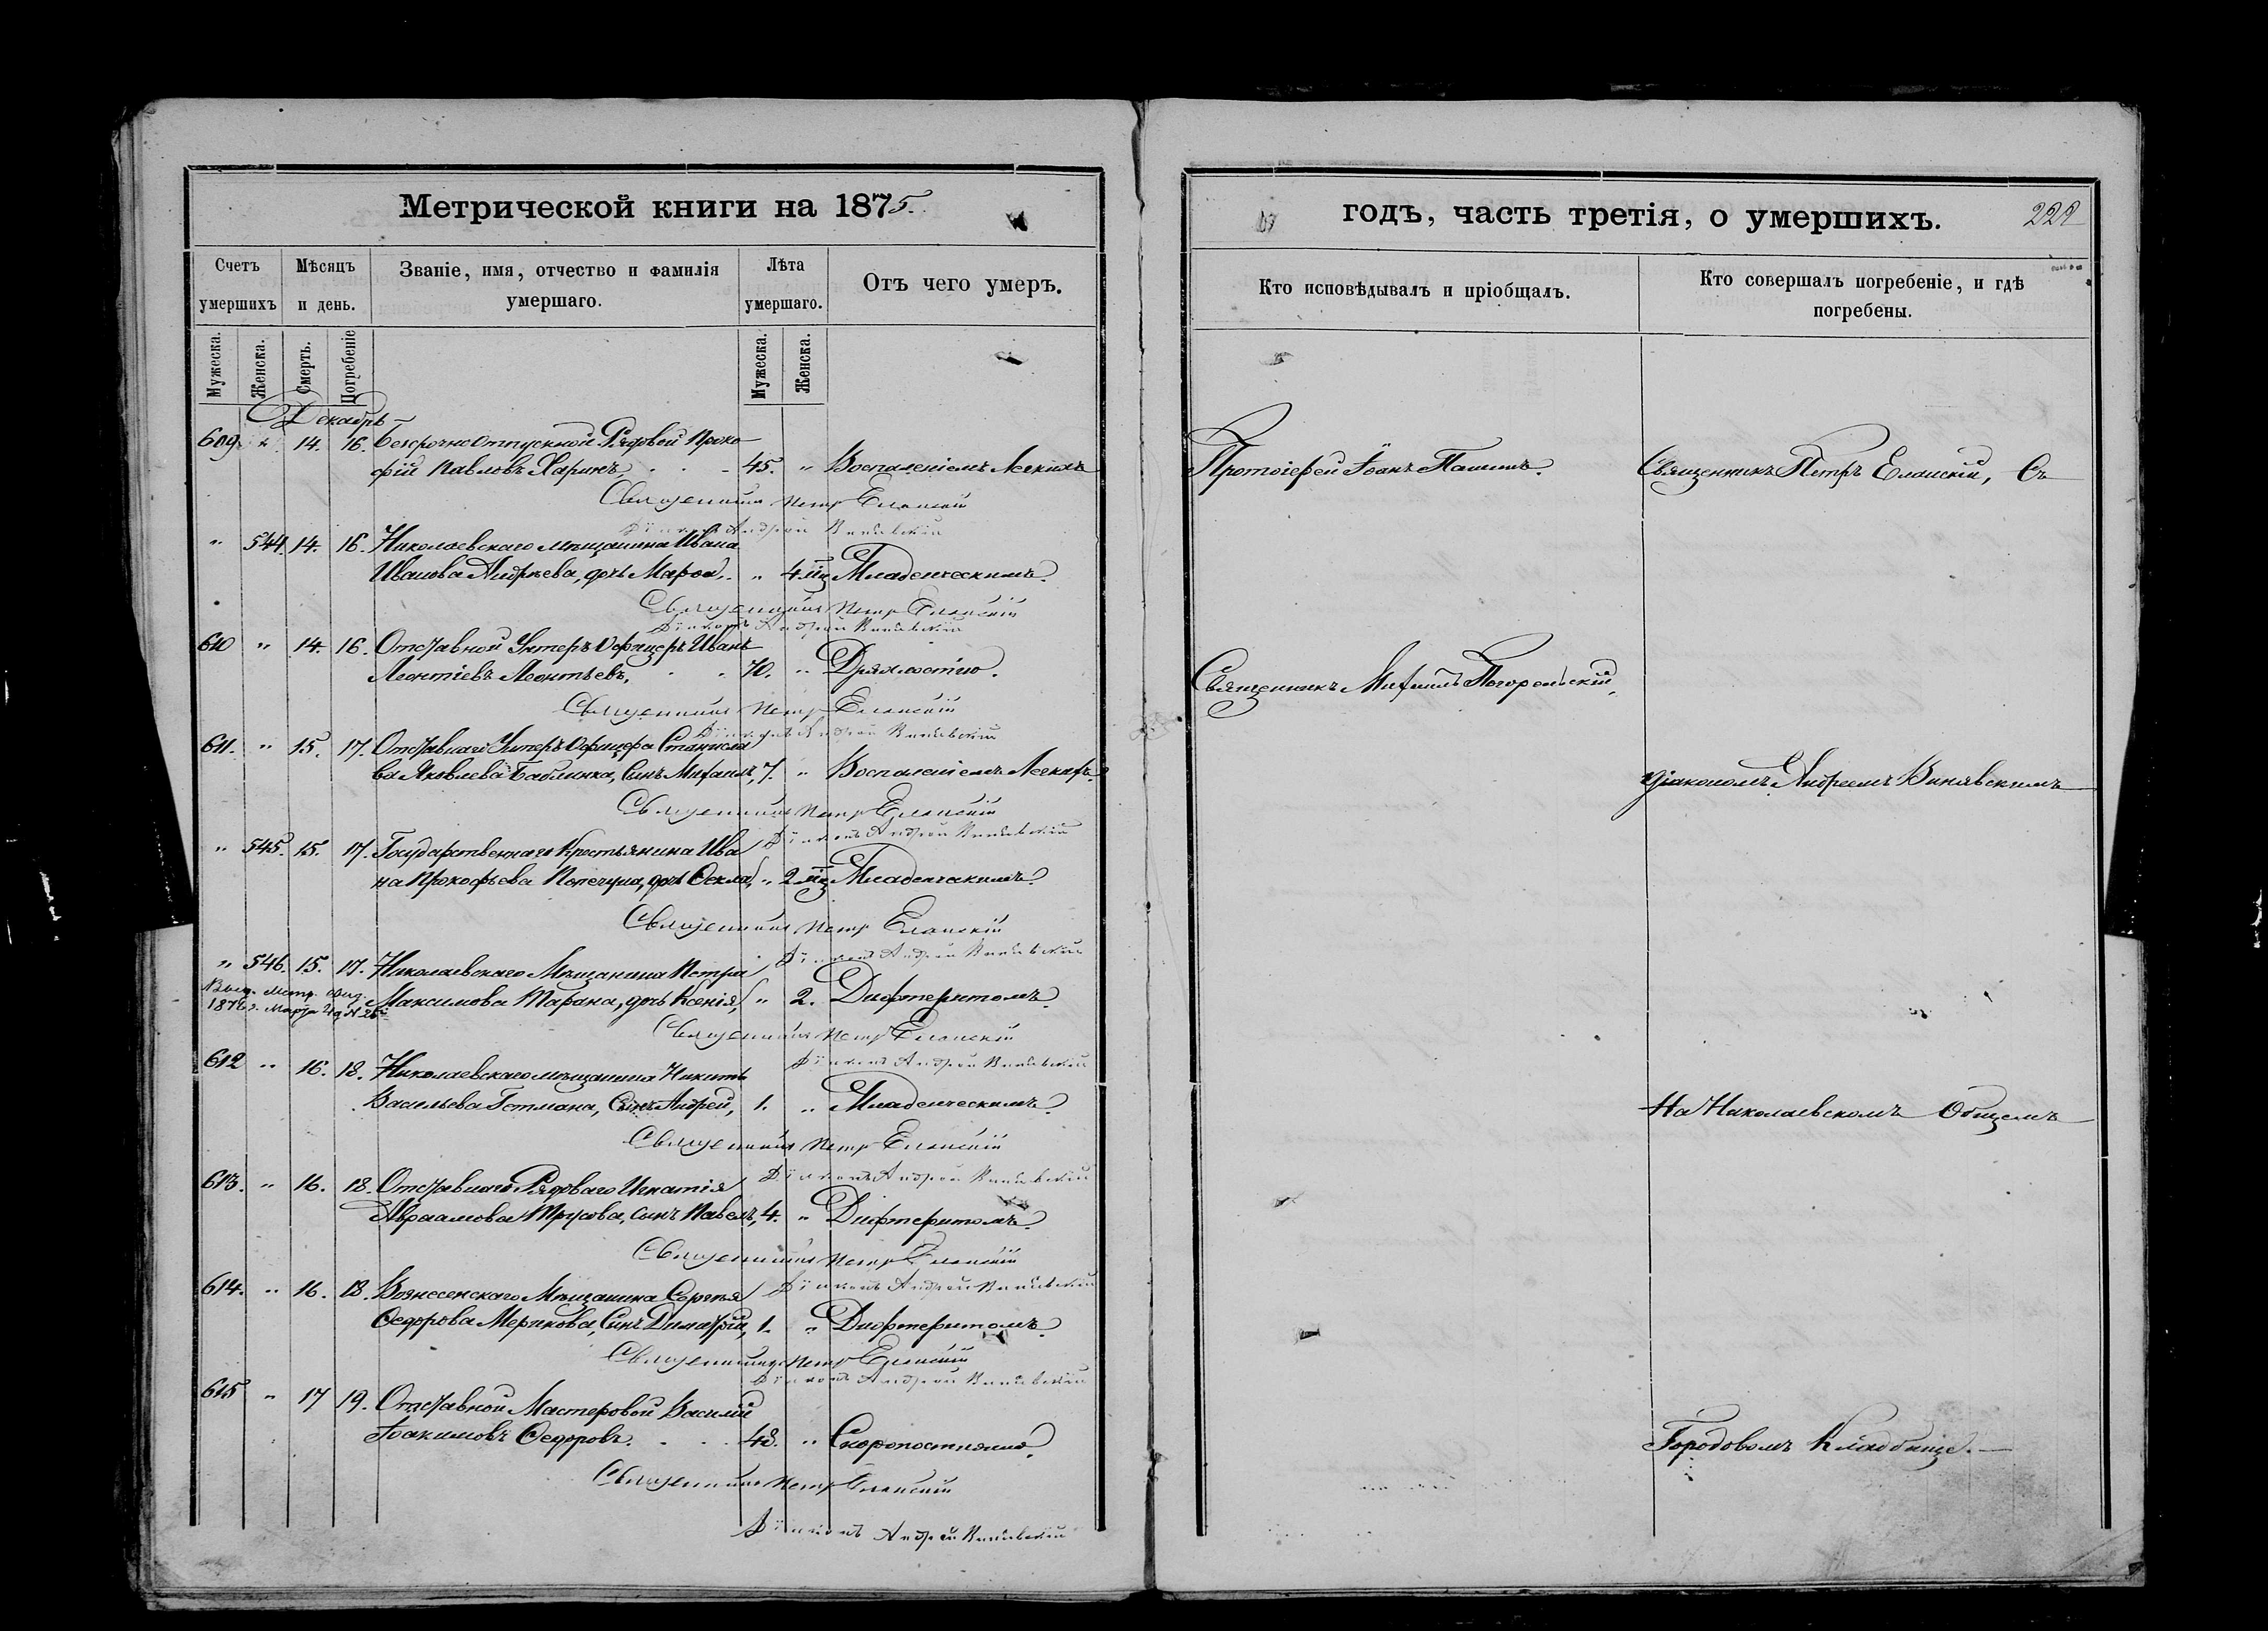 Метрической книги на 1875.
Счетъ умершихъ
Мѣсяцъ и день.
Званіе, имя, отчество и фамилія умершаго.
Лѣта умершаго.
Отъ чего умеръ.
Мужеска.
Женска.
Смерть.
Погребеніе
Мужеска.
Женска.
Декабрь
609. " 14. 16. Безсрочно Отпускной Рядовой Проко-
фій Павловъ Харинъ, 45. " Воспаленіемъ Легкихъ
Священникъ Петръ Еланскій
Діаконъ Андрей Винявскій
" 544. 14. 16. Николаевскаго мѣщанина Ивана
Иванова Андреева, дочь Марѳа, " 4 мц Младенческимъ.
Священникъ Петръ Еланскій
Діаконъ Андрей Винявскій
610 " 14. 16. Отставной Унтеръ Офицеръ Иванъ
Леонтіевъ Леонтьевъ, 70. " Дряхлостію.
Священникъ Петръ Еланскій
Діаконъ Андрей Винявскій
611. " 15. 17. Отставнаго Унтеръ Офицера Станисла
ва Яковлева Бабчинка, Сынъ Михаилъ, 7. " Воспаленіемъ Легкихъ.
Священникъ Петръ Еланскій
Діаконъ Андрей Винявскій
" 545. 15. 17. Государственнаго Крестьянина Ива
на Прокофьева дочь Ѳекла, " 2 мц Младенческимъ.
Священникъ Петръ Еланскій
Діаконъ Андрей Винявскій
" 546. 15. 17. Николаевскаго Мѣщанина Петра
Максимова Тарана, дочь Ксенія, " 2. Дифтеритомъ.
Выд. Метр. Свид.
1876 г. Марта
Священникъ Петръ Еланскій
Діаконъ Андрей Винявскій
612 " 16. 18. Николаевскаго мѣщанина Никиты
Васильева Гетмана, Сынъ Андрей, 1. " Младенческимъ.
Священникъ Петръ Еланскій
Діаконъ Андрей Винявскій
613. " 16. 18. Отставнаго Рядоваго Игнатія
Авраамова Трусова, сынъ Павелъ, 4. " Дифтеритомъ.
Священникъ Петръ Еланскій
Діаконъ Андрей Винявскій
614. " 16. 18. Вознесенскаго Мѣщанина Сергѣя
Ѳедорова Мерикова, Сынъ Димитрій, 1. " Дифтеритомъ.
Священникъ Петръ Еланскій
Діаконъ Андрей Винявскій
615 " 17 19. Отставной Мастеровой Василій
Іоакимовъ Ѳедоровъ. 48. " Скоропостижно.
Священникъ Петръ Еланскій
Діаконъ Андрей Винявскій
годъ, часть третія, о умершихъ.
222
Кто исповѣдывалъ и пріобщалъ.
Кто совершалъ погребеніе, и гдѣ погребены.
Протоіерей Іоанъ Пашинъ.
Священникъ Петръ Еланскій, Съ
Священникъ Михаилъ Погорельскій,
діакономъ Андреемъ Винявскимъ
На Николаевскомъ Общемъ
Городовомъ Кладбище.